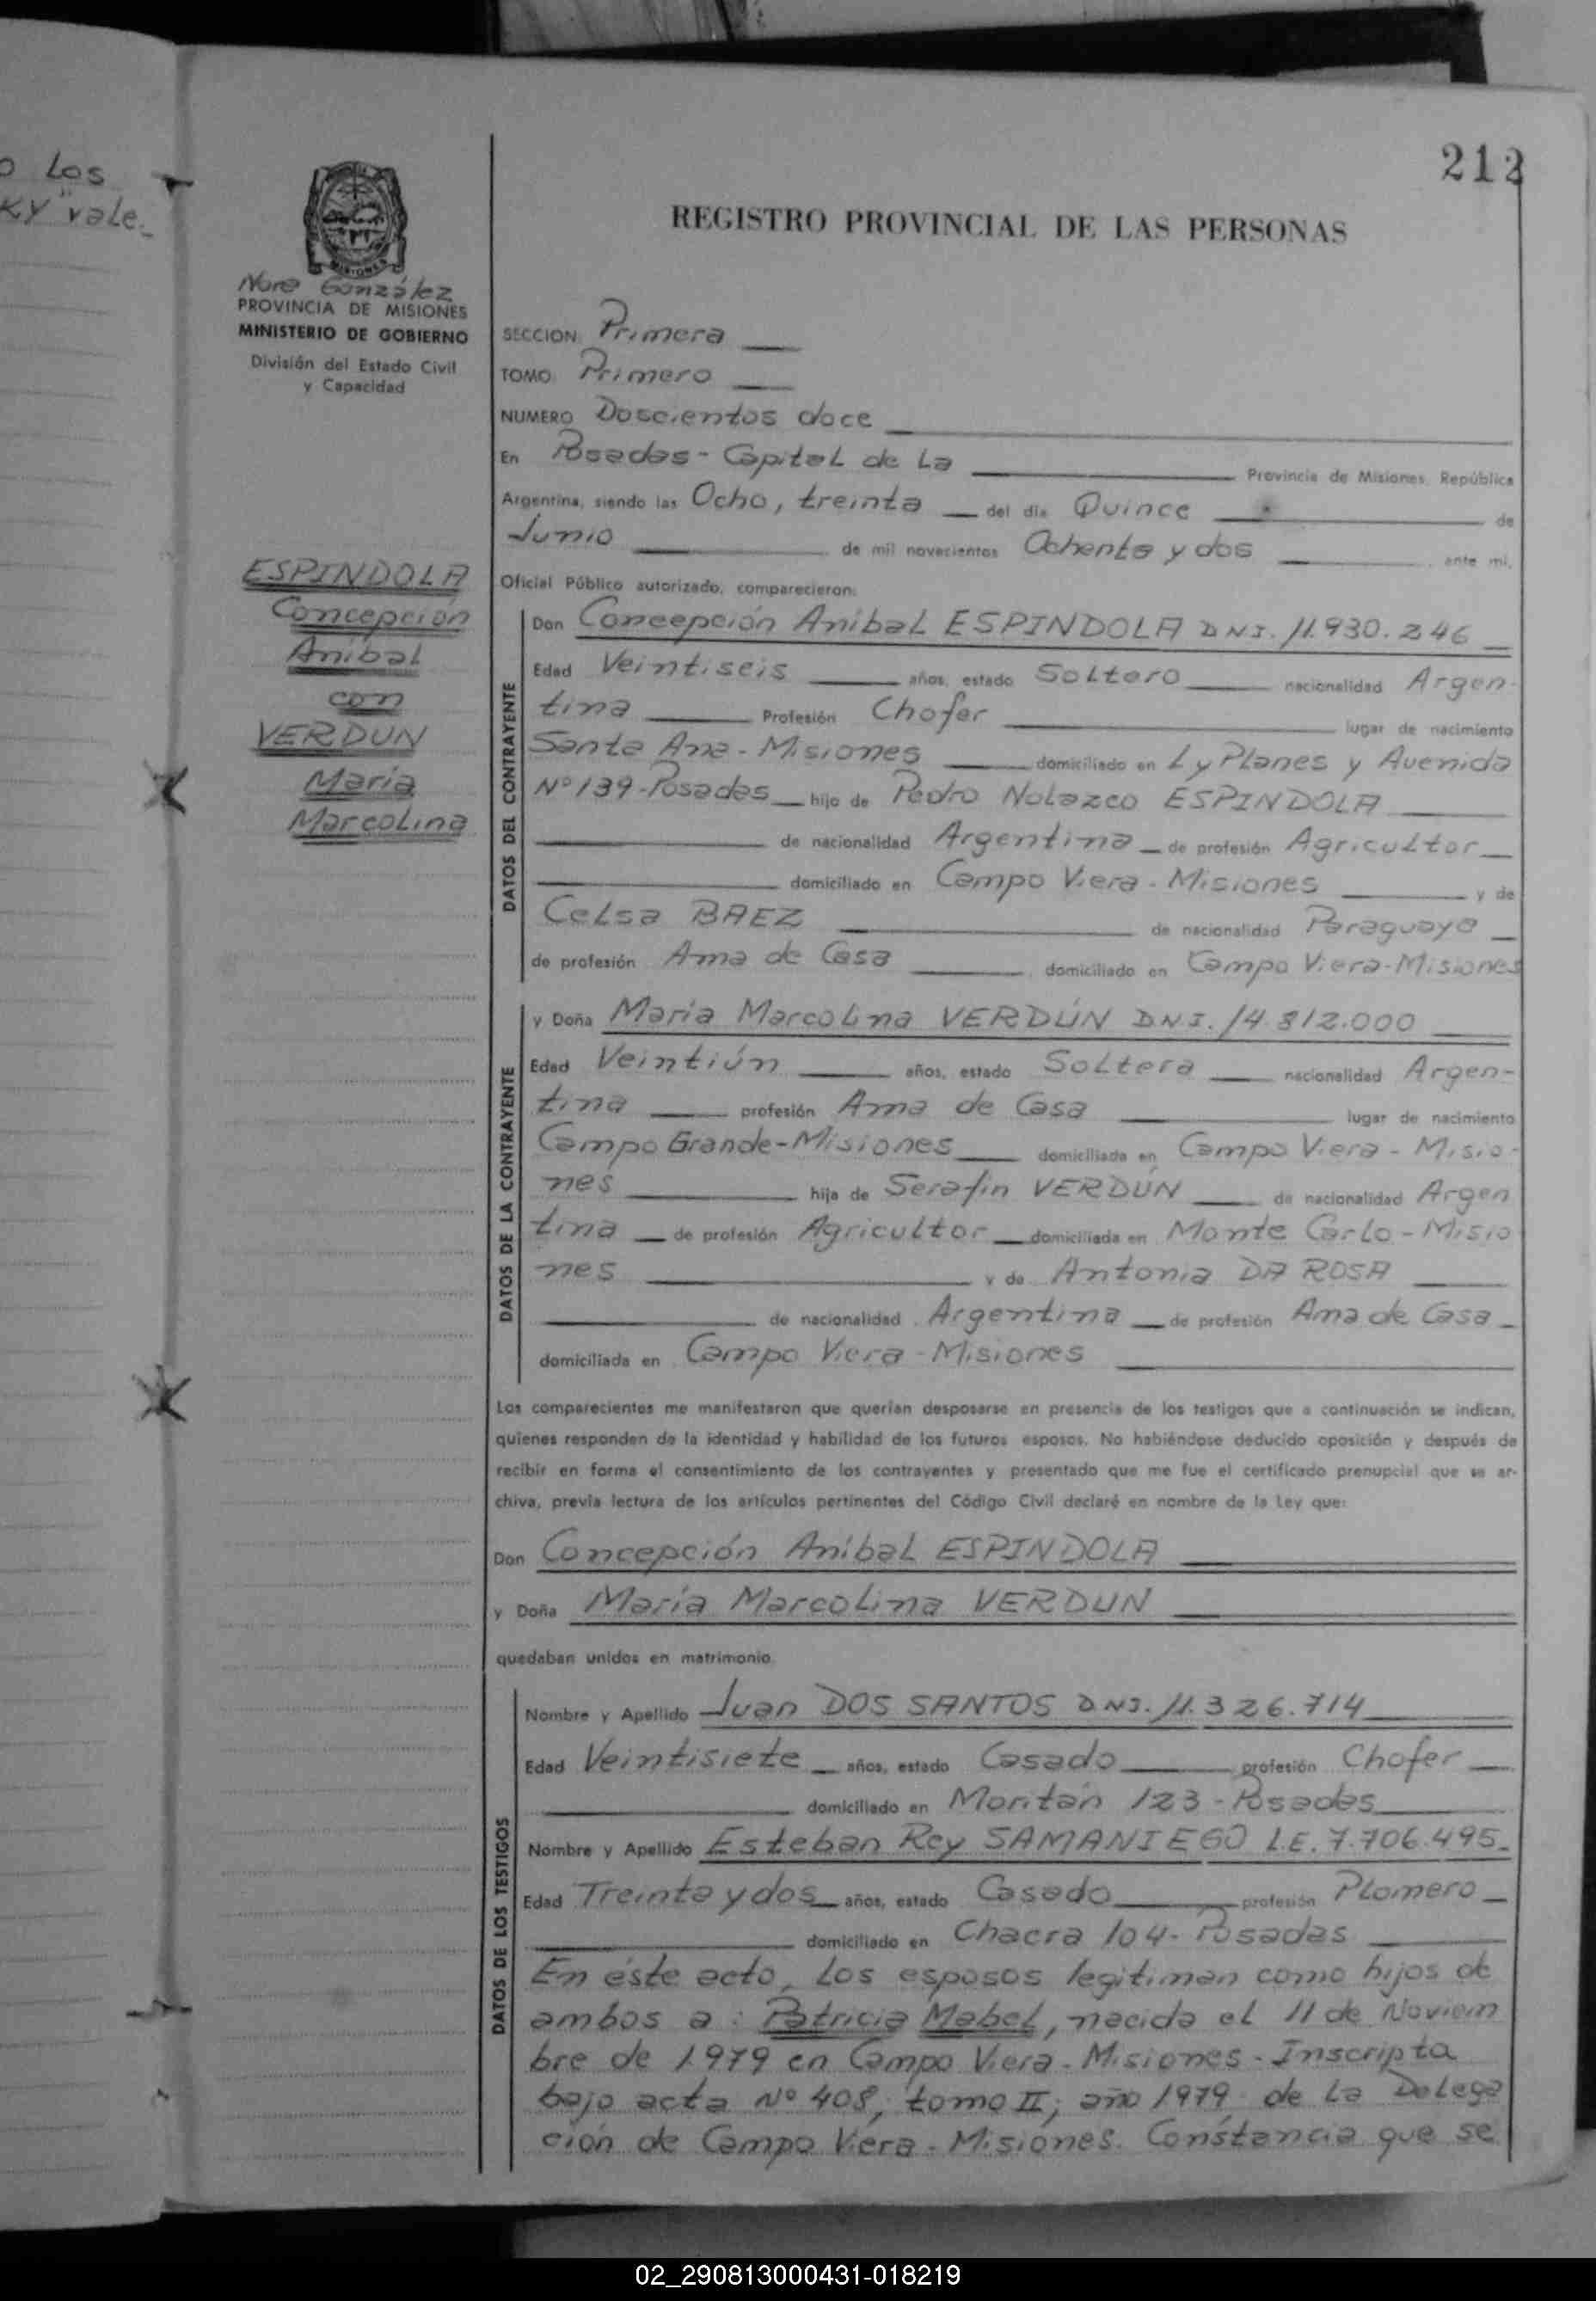 o Los
KY" vale._
212
REGISTRO PROVINCIAL DE LAS PERSONAS
MISIONES
Nora González
PROVINCIA DE MISIONES
MINISTERIO DE GOBIERNO
División del Estado Civil
y Capacidad
SECCION: Primera
TOMO: Primero
NUMERO Doscientos doce
En Posadas - Capital de La Provincia de Misiones, República
Argentina, siendo las Ocho, treinta del día Quince de
Junio de mil novecientos Ochenta y dos ante mi,
Oficial Público autorizado, comparecieron:
ESPINDOLA
Concepción
Anibal
con
VERDUN
María
Marcolina
DATOS DEL CONTRAYENTE
Don Concepción Aníbal ESPINDOLA DNI. 11.930.246
Edad Veintiseis años, estado Soltero nacionalidad Argen-
tina Profesión Chofer lugar de nacimiento
Santa Ana - Misiones domiciliado en L y Planes y Avenida
Nº 139 - Posadas hijo de Pedro Nolazco ESPINDOLA
de nacionalidad Argentina de profesión Agricultor
domiciliado en Campo Viera - Misiones y de
Celsa BAEZ de nacionalidad Paraguaya
de profesión Ama de Casa domiciliado en Campo Viera - Misiones
DATOS DE LA CONTRAYENTE
y Doña María Marcolina VERDÚN DNI. 14.812.000
Edad Veintiún años, estado Soltera nacionalidad Argen-
tina profesión Ama de Casa lugar de nacimiento
Campo Grande - Misiones domiciliada en Campo Viera - Misio-
nes hija de Serafín VERDÚN de nacionalidad Argen
tina de profesión Agricultor domiciliada en Monte Carlo - Misio
nes y de Antonia DA ROSA
de nacionalidad Argentina de profesión Ama de Casa
domiciliada en Campo Viera - Misiones
Los comparecientes me manifestaron que querían desposarse en presencia de los testigos que a continuación se indican,
quienes responden de la identidad y habilidad de los futuros esposos. No habiéndose deducido oposición y después de
recibir en forma el consentimiento de los contrayentes y presentado que me fue el certificado prenupcial que se ar-
chiva, previa lectura de los artículos pertinentes del Código Civil declaré en nombre de la Ley que:
Don Concepción Aníbal ESPINDOLA
y Doña María Marcolina VERDUN
quedaban unidos en matrimonio.
DATOS DE LOS TESTIGOS
Nombre y Apellido Juan DOS SANTOS DNI. 11.326.714
Edad Veintisiete años, estado Casado profesión Chofer
domiciliado en Moritán 123 - Posadas
Nombre y Apellido Esteban Rey SAMANIEGO L.E. 7.706.495
Edad Treinta y dos años, estado Casado profesión Plomero
domiciliado en Chacra 104 - Posadas
En éste acto, los esposos legitiman como hijos de
ambos a: Patricia Mabel, nacida el 11 de Noviem
bre de 1979 en Campo Viera - Misiones - Inscripta
bajo acta Nº 408, tomo II; año 1979 de La Delega
ción de Campo Viera - Misiones. Constancia que se
02_290813000431-018219